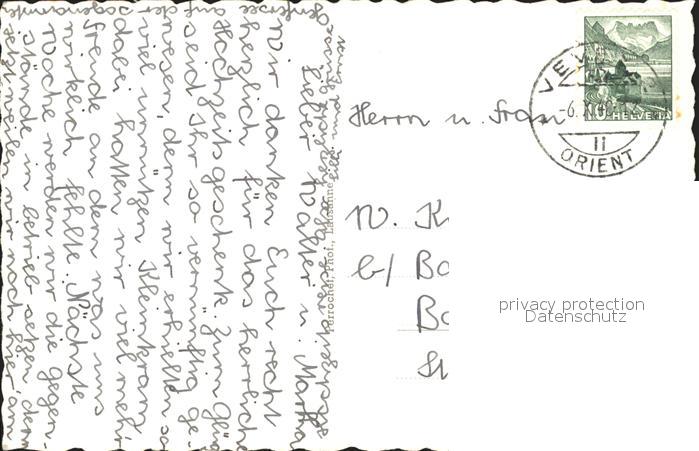 Lieber Walter u. Martha
Wir danken Euch recht
herzlich für das herrliche
Hochzeitsgeschenk. Zum Glück
seid Ihr so vernünftig ge-
wesen, denn wir erhielten so
viel unnützen Kleinkram
dabei hatten wir viel mehr
Freude an dem was uns
wirklich fehlte. Nächste
Woche werden wir die Gegen-
stände in Betrieb setzen, denn
jetzt weilen wir noch hier am
Genfersee
Perrochet, Phot., Lausanne
Herrn u. Frau
W. K
b/ Ba
Ba
St
VEVEY
-6.
II
ORIENT
10 HELVETIA
privacy protection
Datenschutz